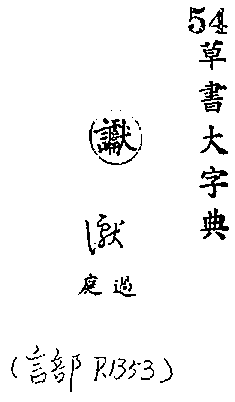 54
草書大字典
讞
過庭
(言部 P.1353)